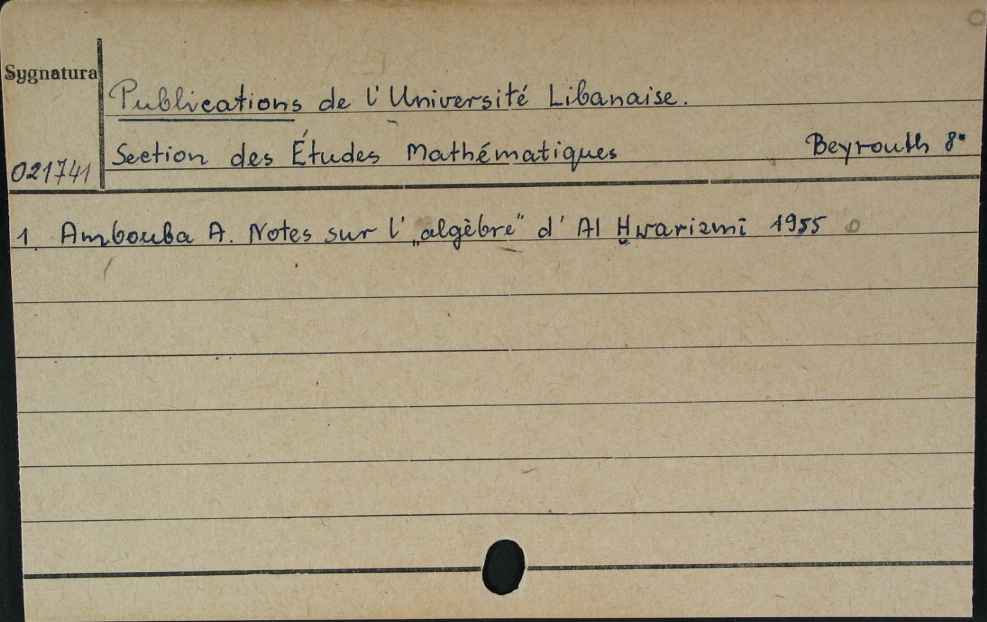 Sygnatura
Publications de l'Université Libanaise.
Section des Études Mathématiques Beyrouth 8°
021741
1. Ambouba A. Notes sur l'„algèbre" d' Al Ḫwarizmī 1955